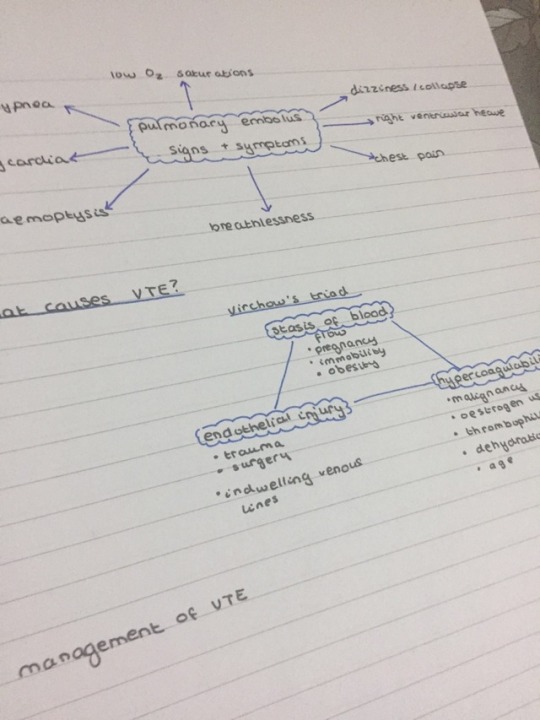 low O2 saturations
ypnea
dizziness/collapse
pulmonary embolus
signs + symptoms
right ventricular heave
ycardia
chest pain
aemoptysis
breathlessness
at causes VTE?
Virchow's triad
stasis of blood
flow
• pregnancy
• immobility
• obesity
hypercoagulabili
• malignancy
• oestrogen us
• thrombophil
• dehydratio
• age
endothelial injury
• trauma
• surgery
• indwelling venous
lines
management of VTE